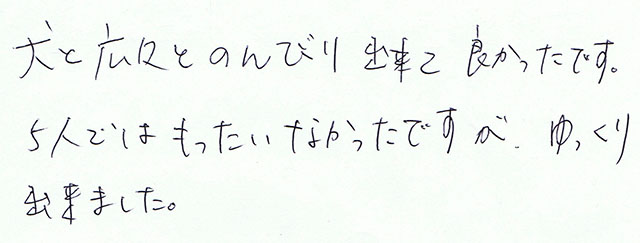 犬と広々とのんびり出来て良かったです。
5人ではもったいなかったですが、ゆっくり
出来ました。